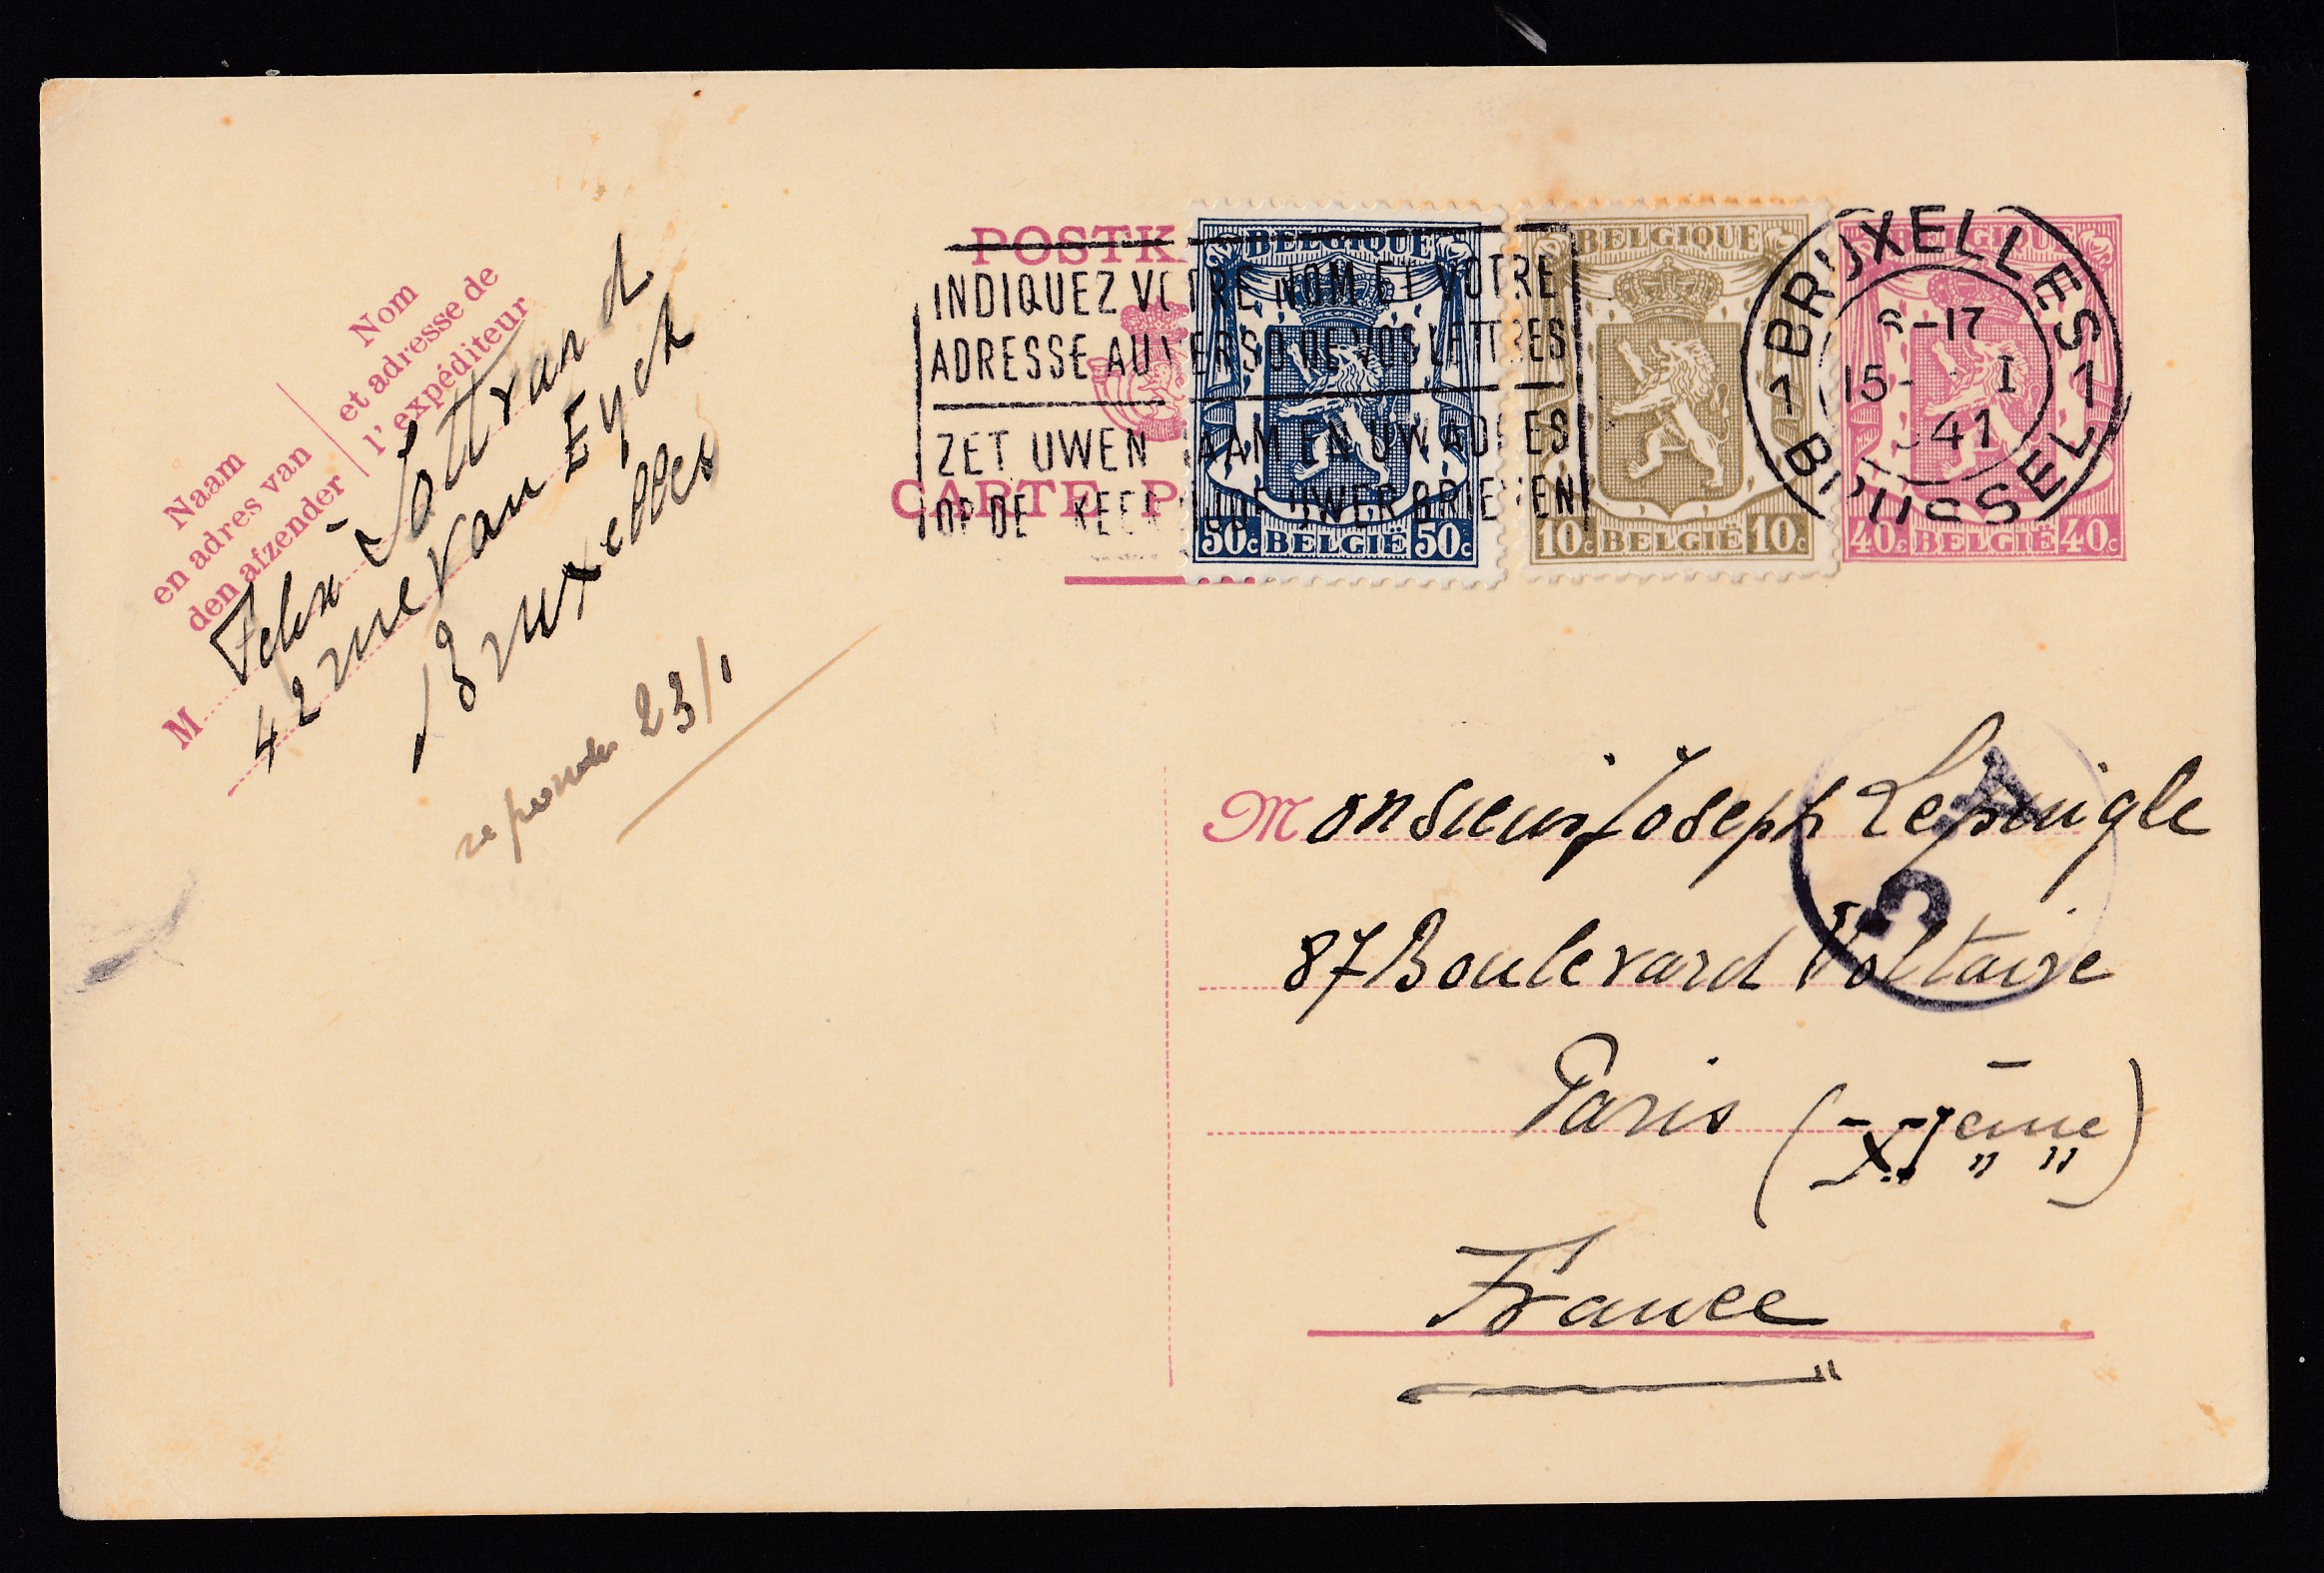 Naam
en adres van
den afzender
Nom
et adresse de
l'expéditeur
M Felix Lottrand
42 rue Van Eyck
Bruxelles
repondu 23/1
POSTK
CARTE P
INDIQUEZ VOTRE NOM ET VOTRE
ADRESSE AU VERSO DE VOS LETTRES
ZET UWEN NAAM EN UW ADRES
OP DE KEERZIJDE UWER BRIEVEN
BELGIQUE
50c BELGIË 50c
BELGIQUE
10c BELGIË 10c
BELGIQUE
40c BELGIË 40c
1 BRUXELLES 1
-17
15- I
41
BRUSSEL
Monsieur Joseph Lepingle
87 Boulevard Voltaire
Paris (XIème)
France